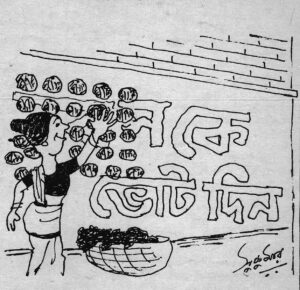 কে
ভোট দিন